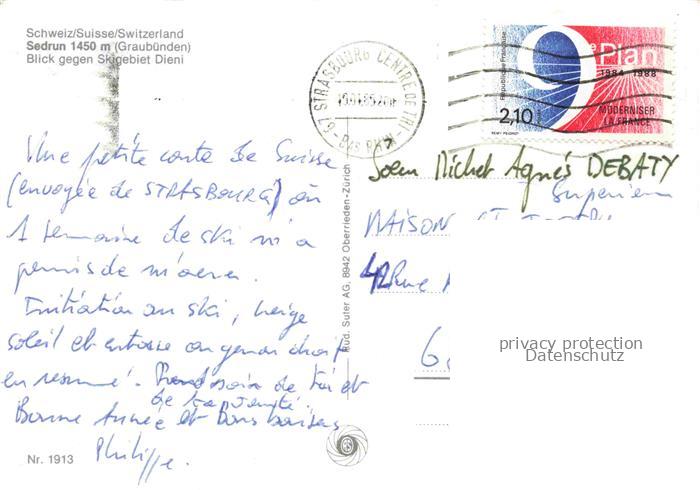 Schweiz/Suisse/Switzerland
Sedrun 1450 m (Graubünden)
Blick gegen Skigebiet Dieni
67 STRASBOURG CENTRE DE TRI
BAS RHIN
République Française
9e Plan
1984 1988
MODERNISER
LA FRANCE
2,10
Une petite carte de Suisse
(envoyée de STRASBOURG) où
1 semaine de ski m'a
permis de m'aérer.
Initiation au ski, neige
soleil et entorse au genou droit
en résumé. Prend soin de toi et
de ta santé.
Bonne Année et bons baisers
Philippe.
Soeur Michel Agnès DEBATY
MAISON ST
42 Rue
6
Rud. Suter AG, 8942 Oberrieden-Zürich
Nr. 1913
privacy protection
Datenschutz